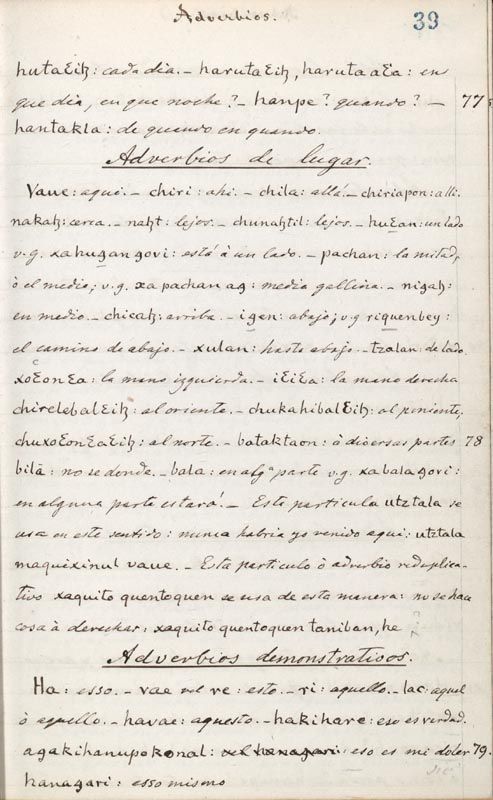 Adverbios.
39
hutaƐiꜩ: cada dia. – harutaƐiꜩ, harutaaƐa: en
que dia, en que noche? – hanpe? quando? – 77
hantakla: de quando en quando.
Adverbios de lugar.
Vaue: aqui. – chiri: ahi. – chila: allá. – chiriapon: alli.
nakaꜩ: cerca. – naꜩt: lejos. – chunaꜩtil: lejos. – huƐan: un lado
v.g. xahugangovi: está à un lado. – pachan: la mitad,
ò el medio; v.g. xapachan ag: media gallina. – nigaꜩ:
en medio. – chicaꜩ: arriba. – igen: abajo; v.g riquenbey:
el camino de abajo. – xulan: hasta abajo. – tzalan: de lado.
xoƐonƐa: la mano izquierda. – iƐiƐa: la mano derecha
chirelebalƐiꜩ: al oriente. – chukahibalƐiꜩ: al poniente,
chuxoƐonƐaƐiꜩ: al norte. – bataktaon: ò diversas partes 78
bilā: no se donde. – bala: en algª parte v.g. xabalagovi:
en alguna parte estará. – Esta particula utztala se
usa en este sentido: nunca habria yo venido aqui: utztala
maquixinul vaue. – Esta particulo ò adverbio reduplica-
tivo xaquito quentoquen se usa de esta manera: no se hace
cosa à derechas: xaquito quentoquen taniban, he
Adverbios demonstrativos.
Ha: esso. – vae vel re: esto. – ri: aquello. – lac: aquel
ò aquello. – havae: aquesto. – hakihare: eso es verdad.
agakihanupokonal: vel hanagari: eso es mi dolor 79.
hanagari: esso mismo